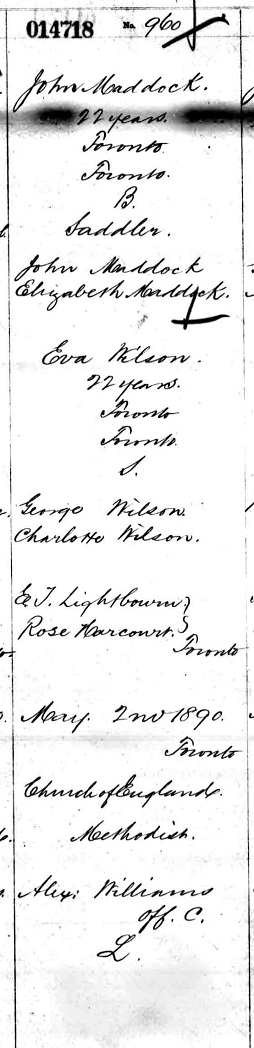 014718 No. 960
John Maddock.
22 years.
Toronto.
Toronto.
B.
Saddler.
John Maddock
Elizabeth Maddock.
Eva Wilson.
22 years.
Toronto
Toronto.
S.
George Wilson.
Charlotte Wilson.
E. T. Lightbourn }
Rose Harcourt. }
Toronto
May. 2nd 1890.
Toronto
Church of England.
Methodist.
Alex: Williams
Off. C.
L.